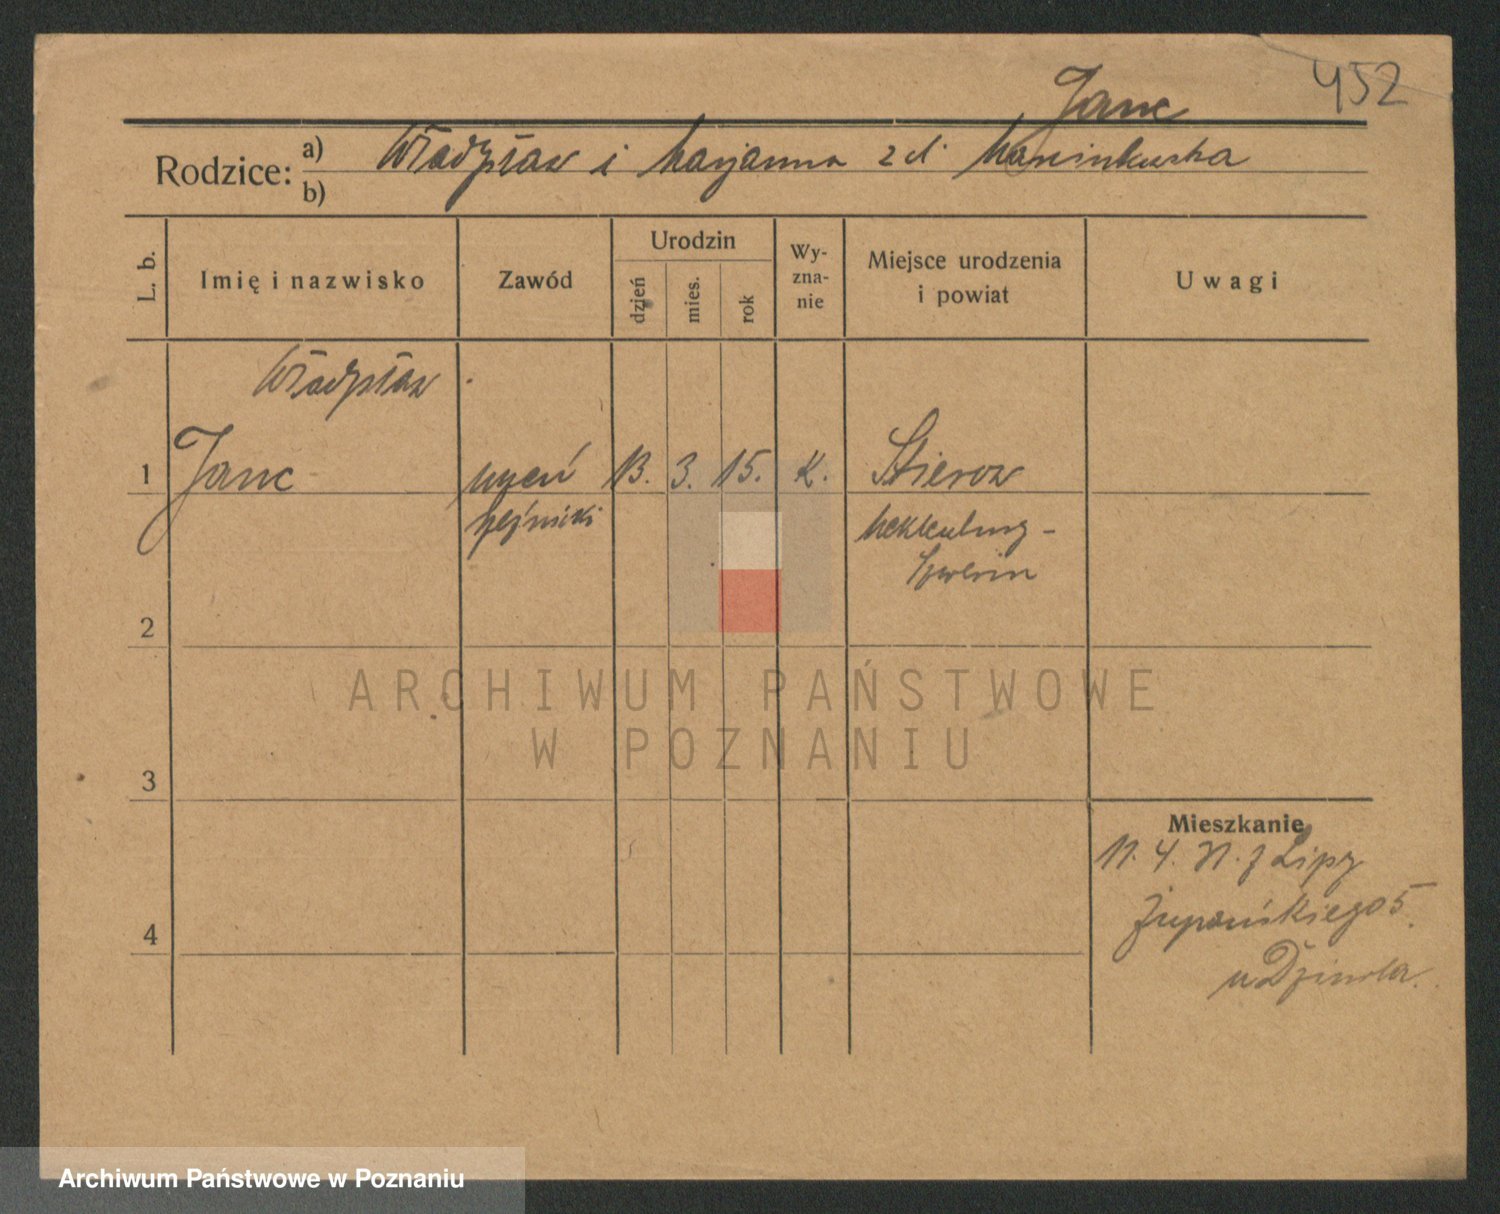 452
Janc
Rodzice: a) Władysław i Marjanna z d. Marcinkowska
b)
L. b.
Imię i nazwisko
Zawód
Urodzin
dzień
mies.
rok
Wy-
zna-
nie
Miejsce urodzenia
i powiat
Uwagi
Władysław
1 Janc uczeń 13. 3. 15. K. Stierow
rzeźnicki Meklenburg-
Szwerin
2
ARCHIWUM PAŃSTWOWE
W POZNANIU
3
Mieszkanie
11. 4. 31. z Lipy
Żupańskiego 5.
4
u
Archiwum Państwowe w Poznaniu